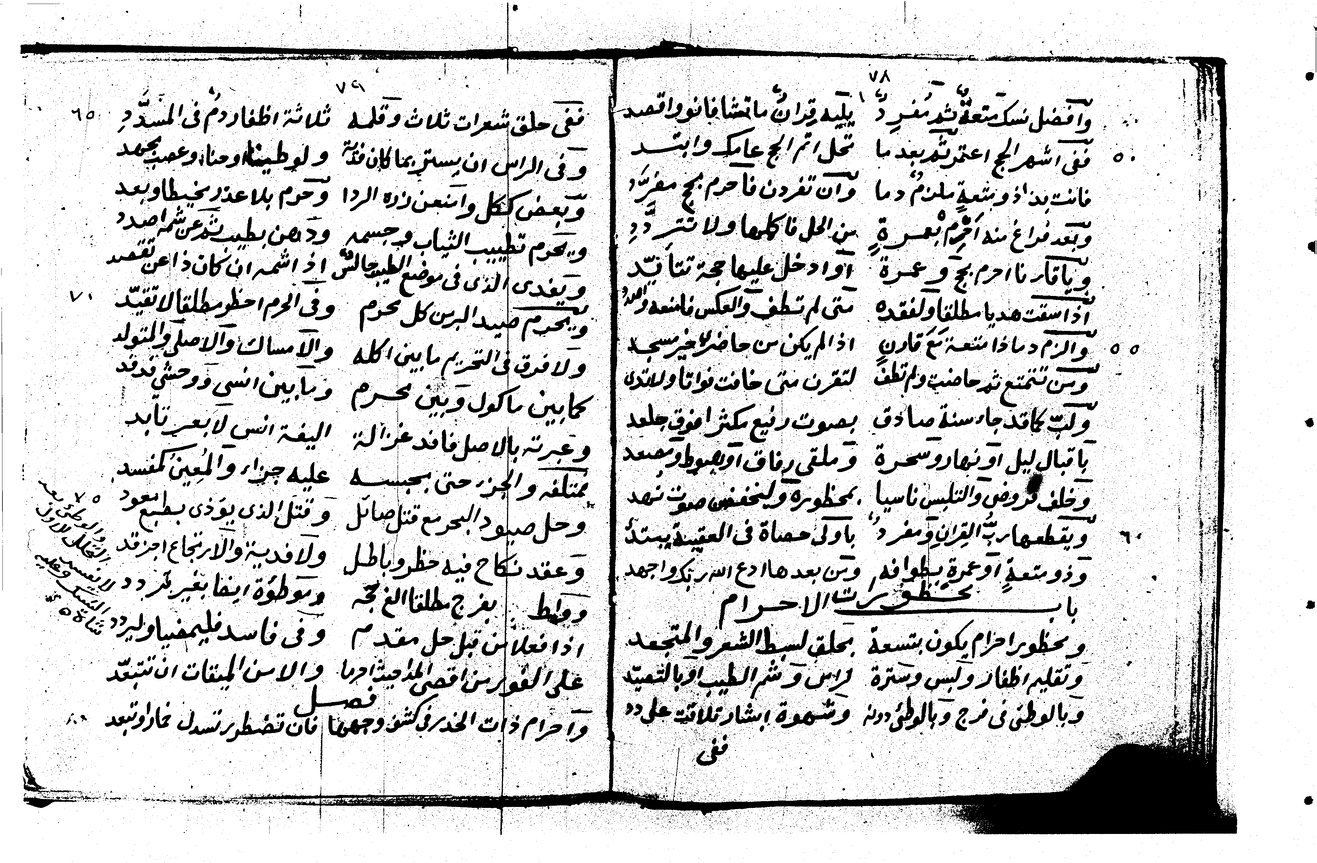 ٧٨
وأفضل نسك متعة ثم مفرد يليه قران ما تشا فانو واقصد
ففى اشهر الحج اعتمر ثم بعد ما تحل اتم الحج عامك وابتد
٥٠
فانت بذا ذو متعة ملزم دما وان تفردن فاحرم بحج مفرد
وبعد فراغ منه احرم بعمرة من الحل فاكملها ولا تتردد
ويا قارنا احرم بحج وعمرة او ادخل عليها حجة تتأيد
اذا سقت هديا مطلقا ولفقده متى لم تطف والعكس فامنعه
٥٥
والزم دما ذا متعة مع قارن اذا لم يكن من حاضرى خير مسجد
ومن تتمتع ثم حاضت ولم تطف لتقرن متى خافت فواتا
ولب كما قد جاء سنة صادق بصوت رفيع مكثرا فوق جلعد
باقبال ليل او نهار وسحرة وملقى رفاق او هبوط ومصعد
وخلف فروض والتلبس ناسيا بمحظوره وليخفض صوت نهد
٦٠
ويقطعها رب القران ومفرد باولى حصاة فى العقيبة يبتدى
وذو متعة او عمرة بطوافه ومن بعدها ادع الله ربك واجهد
باب محظورات الاحرام
ومحظور احرام يكون بتسعة بحلق لسبط الشعر والمتجعد
وتقليم اظفار ولبس وسترة لراس وشم الطيب او بالتصيد
وبالوطئ فى فرج وبالوطئ دونه وشهوة ابشار تلاقت على دد
ففى
٧٩
ففى حلق شعرات ثلاث وقلمه ثلاثة اظفار دم فى المسدد
٦٥
وفى الراس ان يستر بما كان فدية ولو طينا او حناء وعصب
وبعض ككل وامنعن زره الردا وحرم بلا عذر مخيطا وبعد
ويحرم تطييب الثياب وجسمه ودهن بطيب ثم عن شمه اصدد
ويفدى الذى فى موضع الطيب جالس اذا اشتمه ان كان ذا عن تقصد
ويحرم صيد البر من كل محرم وفى الحرم احظر مطلقا لا تقيد
٧٠
ولا فرق فى التحريم ما بين اكله والامساك والاصلى والمتولد
كما بين ماكول وبين محرم وما بين انسى ووحشى قد
وعبرته بالاصل فافد غزالة اليفة انس لا بعير تأبد
ممتلفه والجزر حتى بحبسه عليه جزاء والمعين كمفسد
وحل صيود البحر مع قتل صائل وقتل الذى يؤذى بطبع معود
٧٥
وعقد نكاح فيه حظر وباطل ولا فدية والارتجاع اجز قد
بفرج مطلقا الغ حجه وموطؤة ايضا بغير تردد
اذا فعلا من قبل حل مقدم وفى فاسد فليمضيا
على الفور من اقصى المدى حيث احرما والا من الميقات ان تتبعد
فصل
واحرام ذات الخدر فى كشف وجهها فان تضطرر تسدل خمارا وتبعد
٨٠
والوطئ بعد
التحلل الاول
لا يفسد
النسك وعليه
شاة